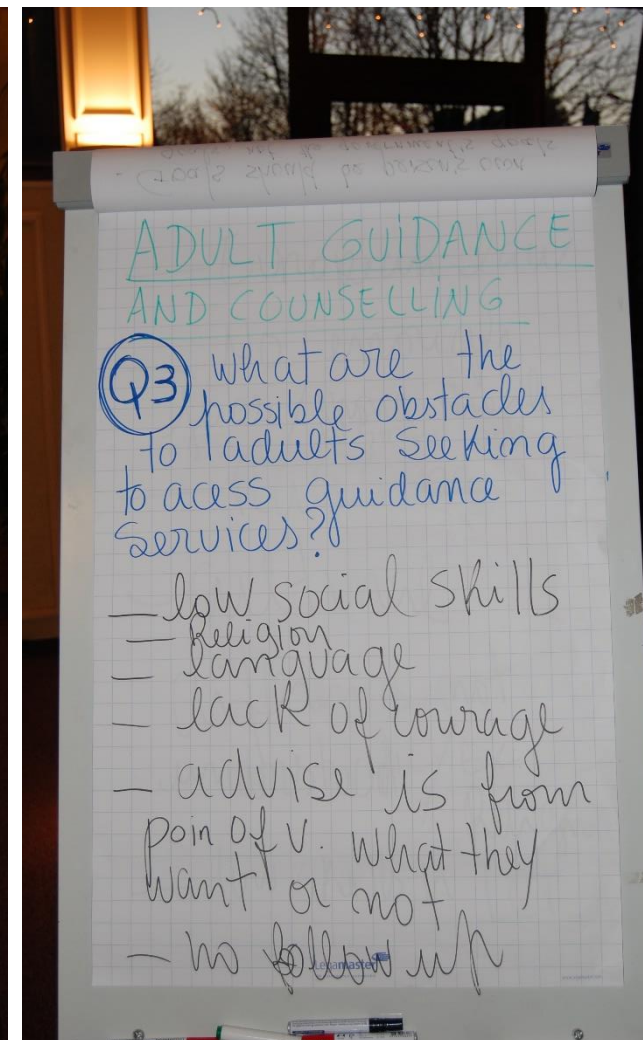 - Goals should be person's own
ADULT GUIDANCE
AND COUNSELLING
Q3 what are the
possible obstacles
to adults seeking
to acess guidance
services?
– low social skills
– Religion
– language
– lack of courage
– advise is from
poin of v. what they
want or not
– no follow up
Legamaster